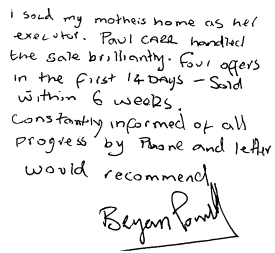 i sold my mothers home as her
executor. Paul CARR handled
the sale brilliantly. Four offers
in the first 14 DAYS – Sold
within 6 weeks.
Constantly informed of all
progress by Phone and letter
would recommend